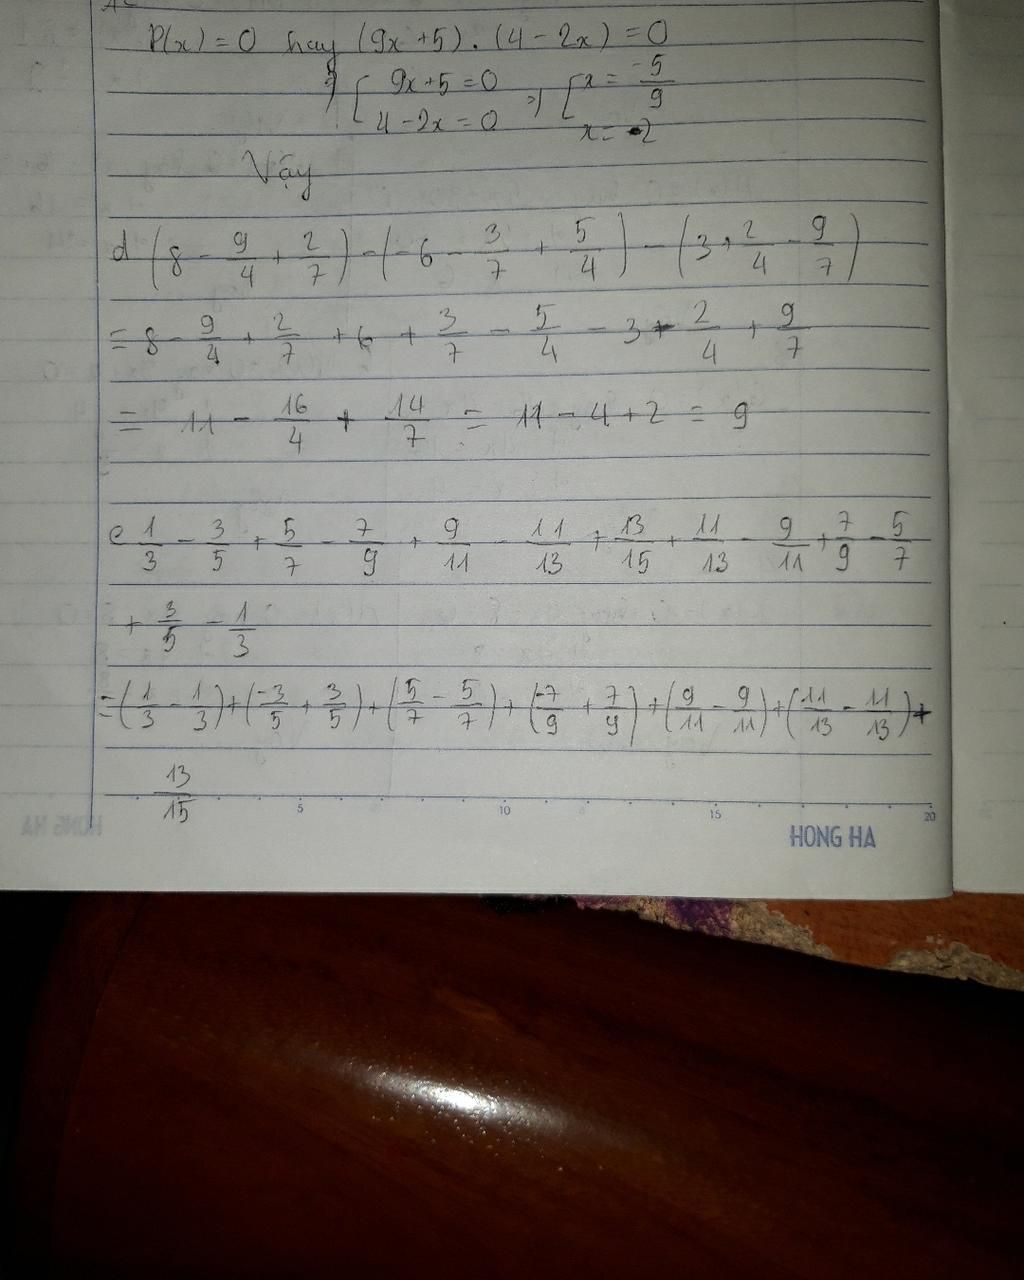 P(x) = 0 hay (9x + 5) . (4 - 2x) = 0
⇒ [ 9x + 5 = 0 ⇒ [ x = -5/9
4 - 2x = 0 x = 2
Vậy
d (8 - 9/4 + 2/7) - (-6 - 3/7 + 5/4) - (3 + 2/4 - 9/7)
= 8 - 9/4 + 2/7 + 6 + 3/7 - 5/4 - 3 - 2/4 + 9/7
= 11 - 16/4 + 14/7 = 11 - 4 + 2 = 9
e 1/3 - 3/5 + 5/7 - 7/9 + 9/11 - 11/13 + 13/15 + 11/13 - 9/11 + 7/9 - 5/7
+ 3/5 - 1/3
= (1/3 - 1/3) + (-3/5 + 3/5) + (5/7 - 5/7) + (-7/9 + 7/9) + (9/11 - 9/11) + (11/13 - 11/13) +
13/15
5 10 15 20
HONG HA